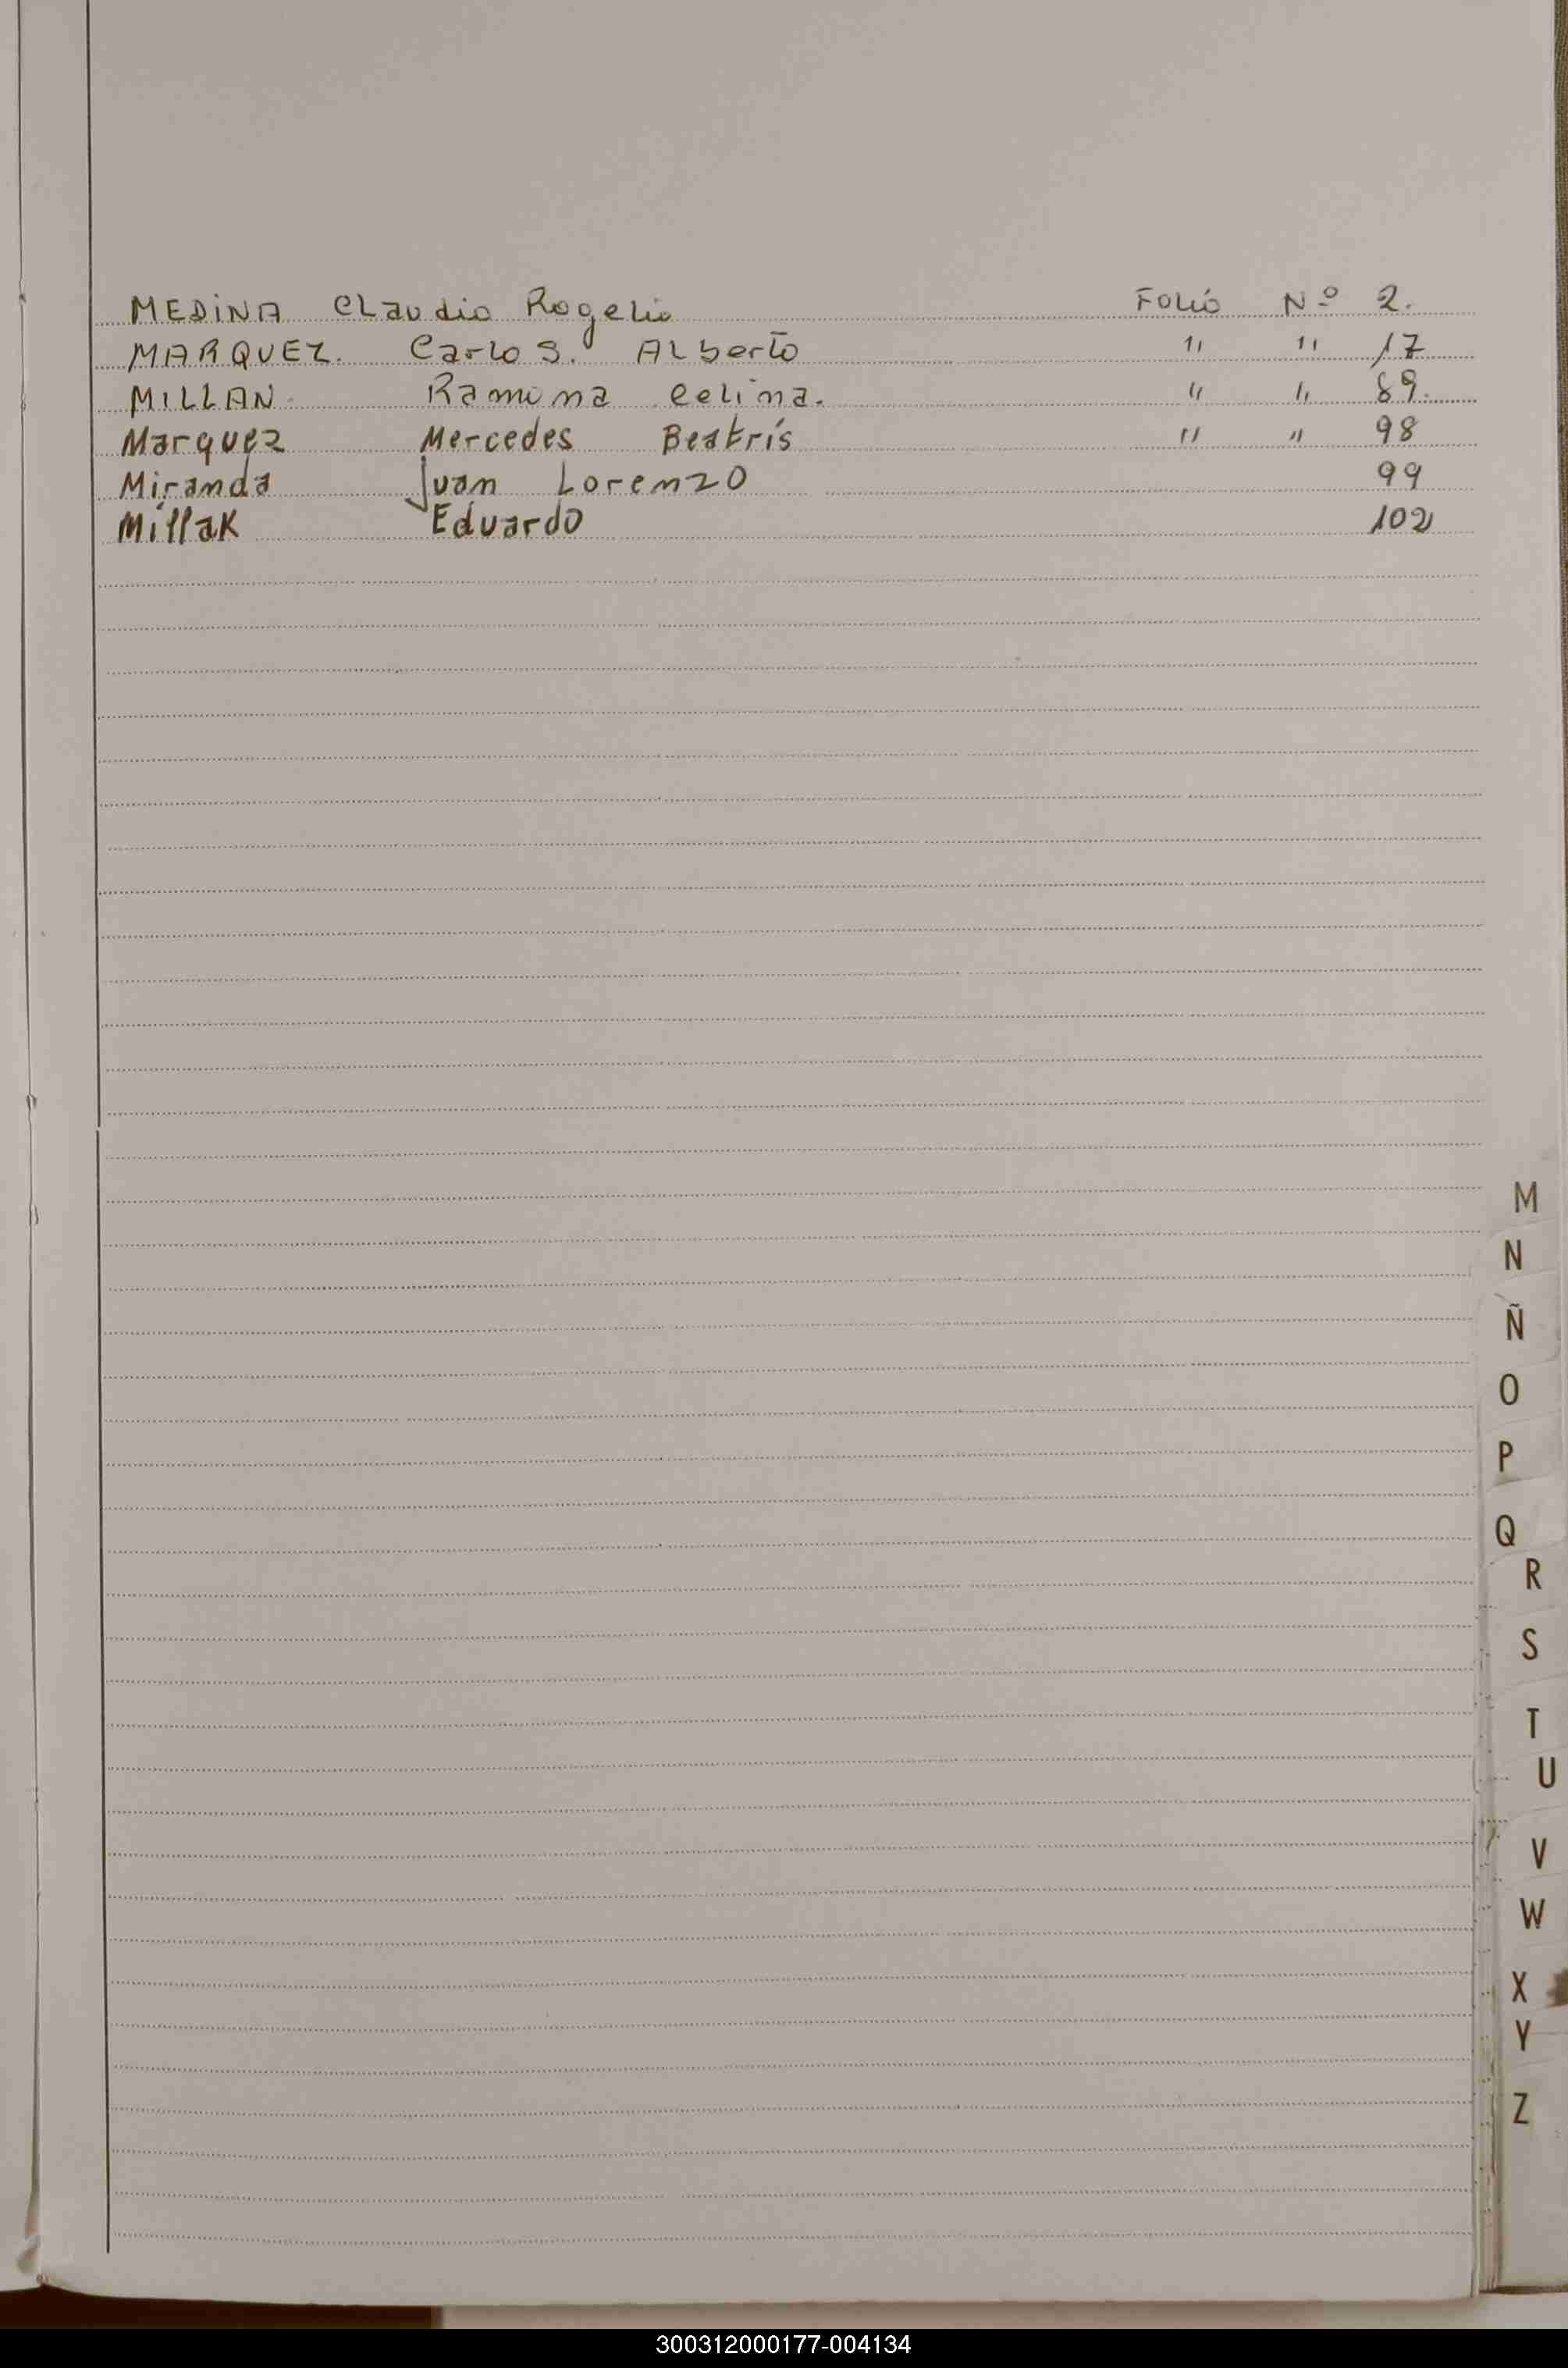 MEDINA Claudio Rogelio Folio Nº 2.
MARQUEZ. Carlos. Alberto " " 17
MILLAN. Ramona Celina. " " 89.
Marquez Mercedes Beatrís " " 98
Miranda Juan Lorenzo 99
Millak Eduardo 102
M
N
Ñ
O
P
Q
R
S
T
U
V
W
X
Y
Z
300312000177-004134